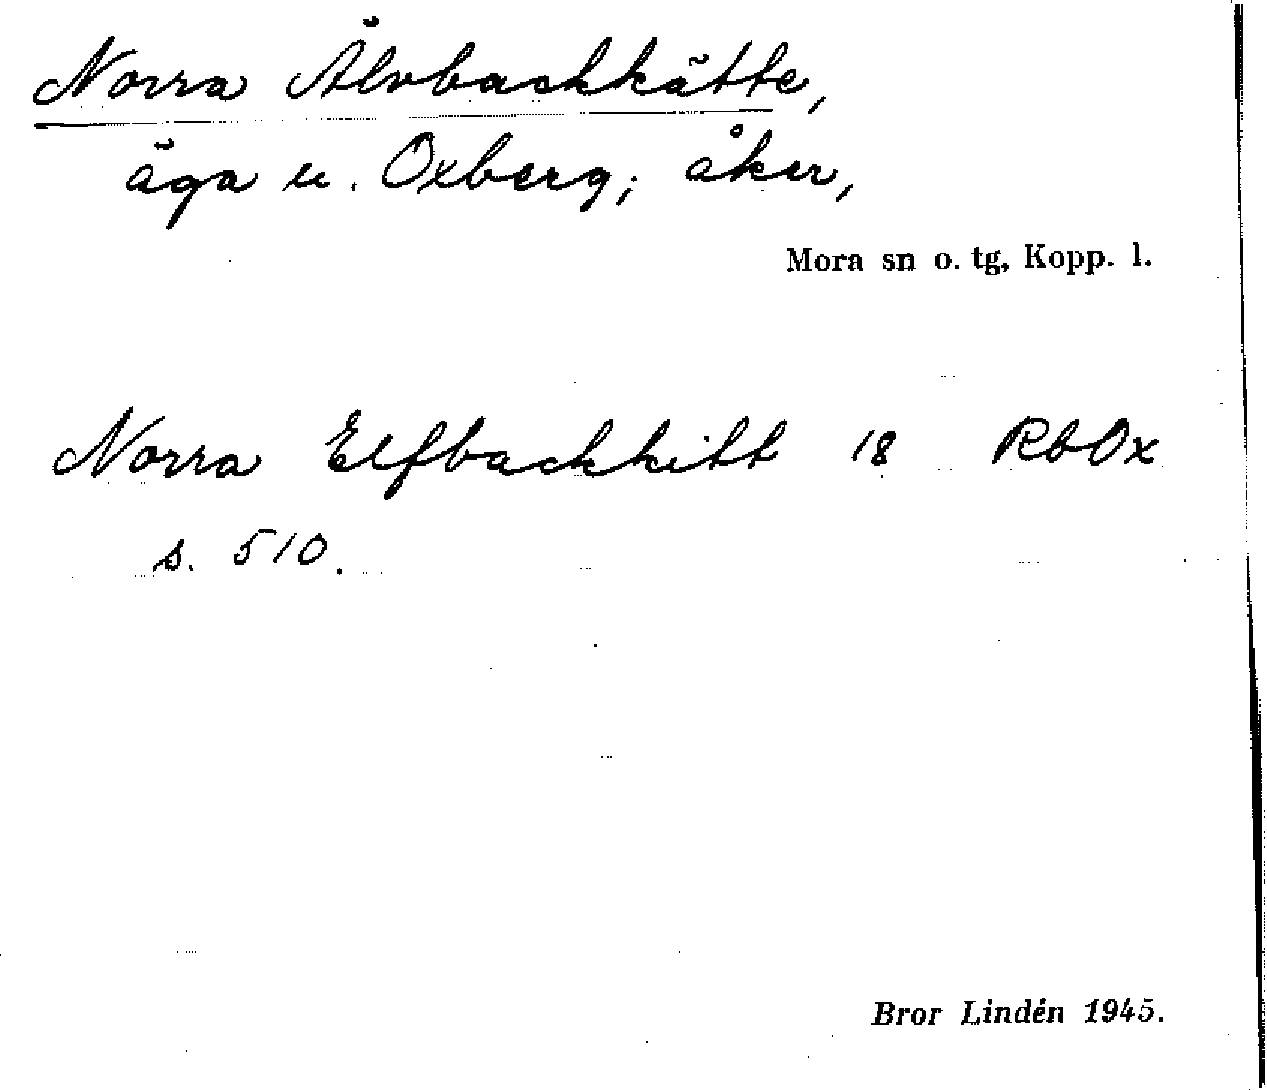 Norra Älvbackkätte,
äga u. Oxberg; åker,
Mora sn o. tg, Kopp. l.
Norra Elfbackkitt 18 RbOx
s. 510.
Bror Lindén 1945.